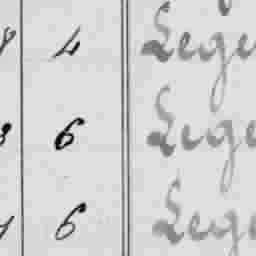 4 Lege
6 Lege
6 Lege